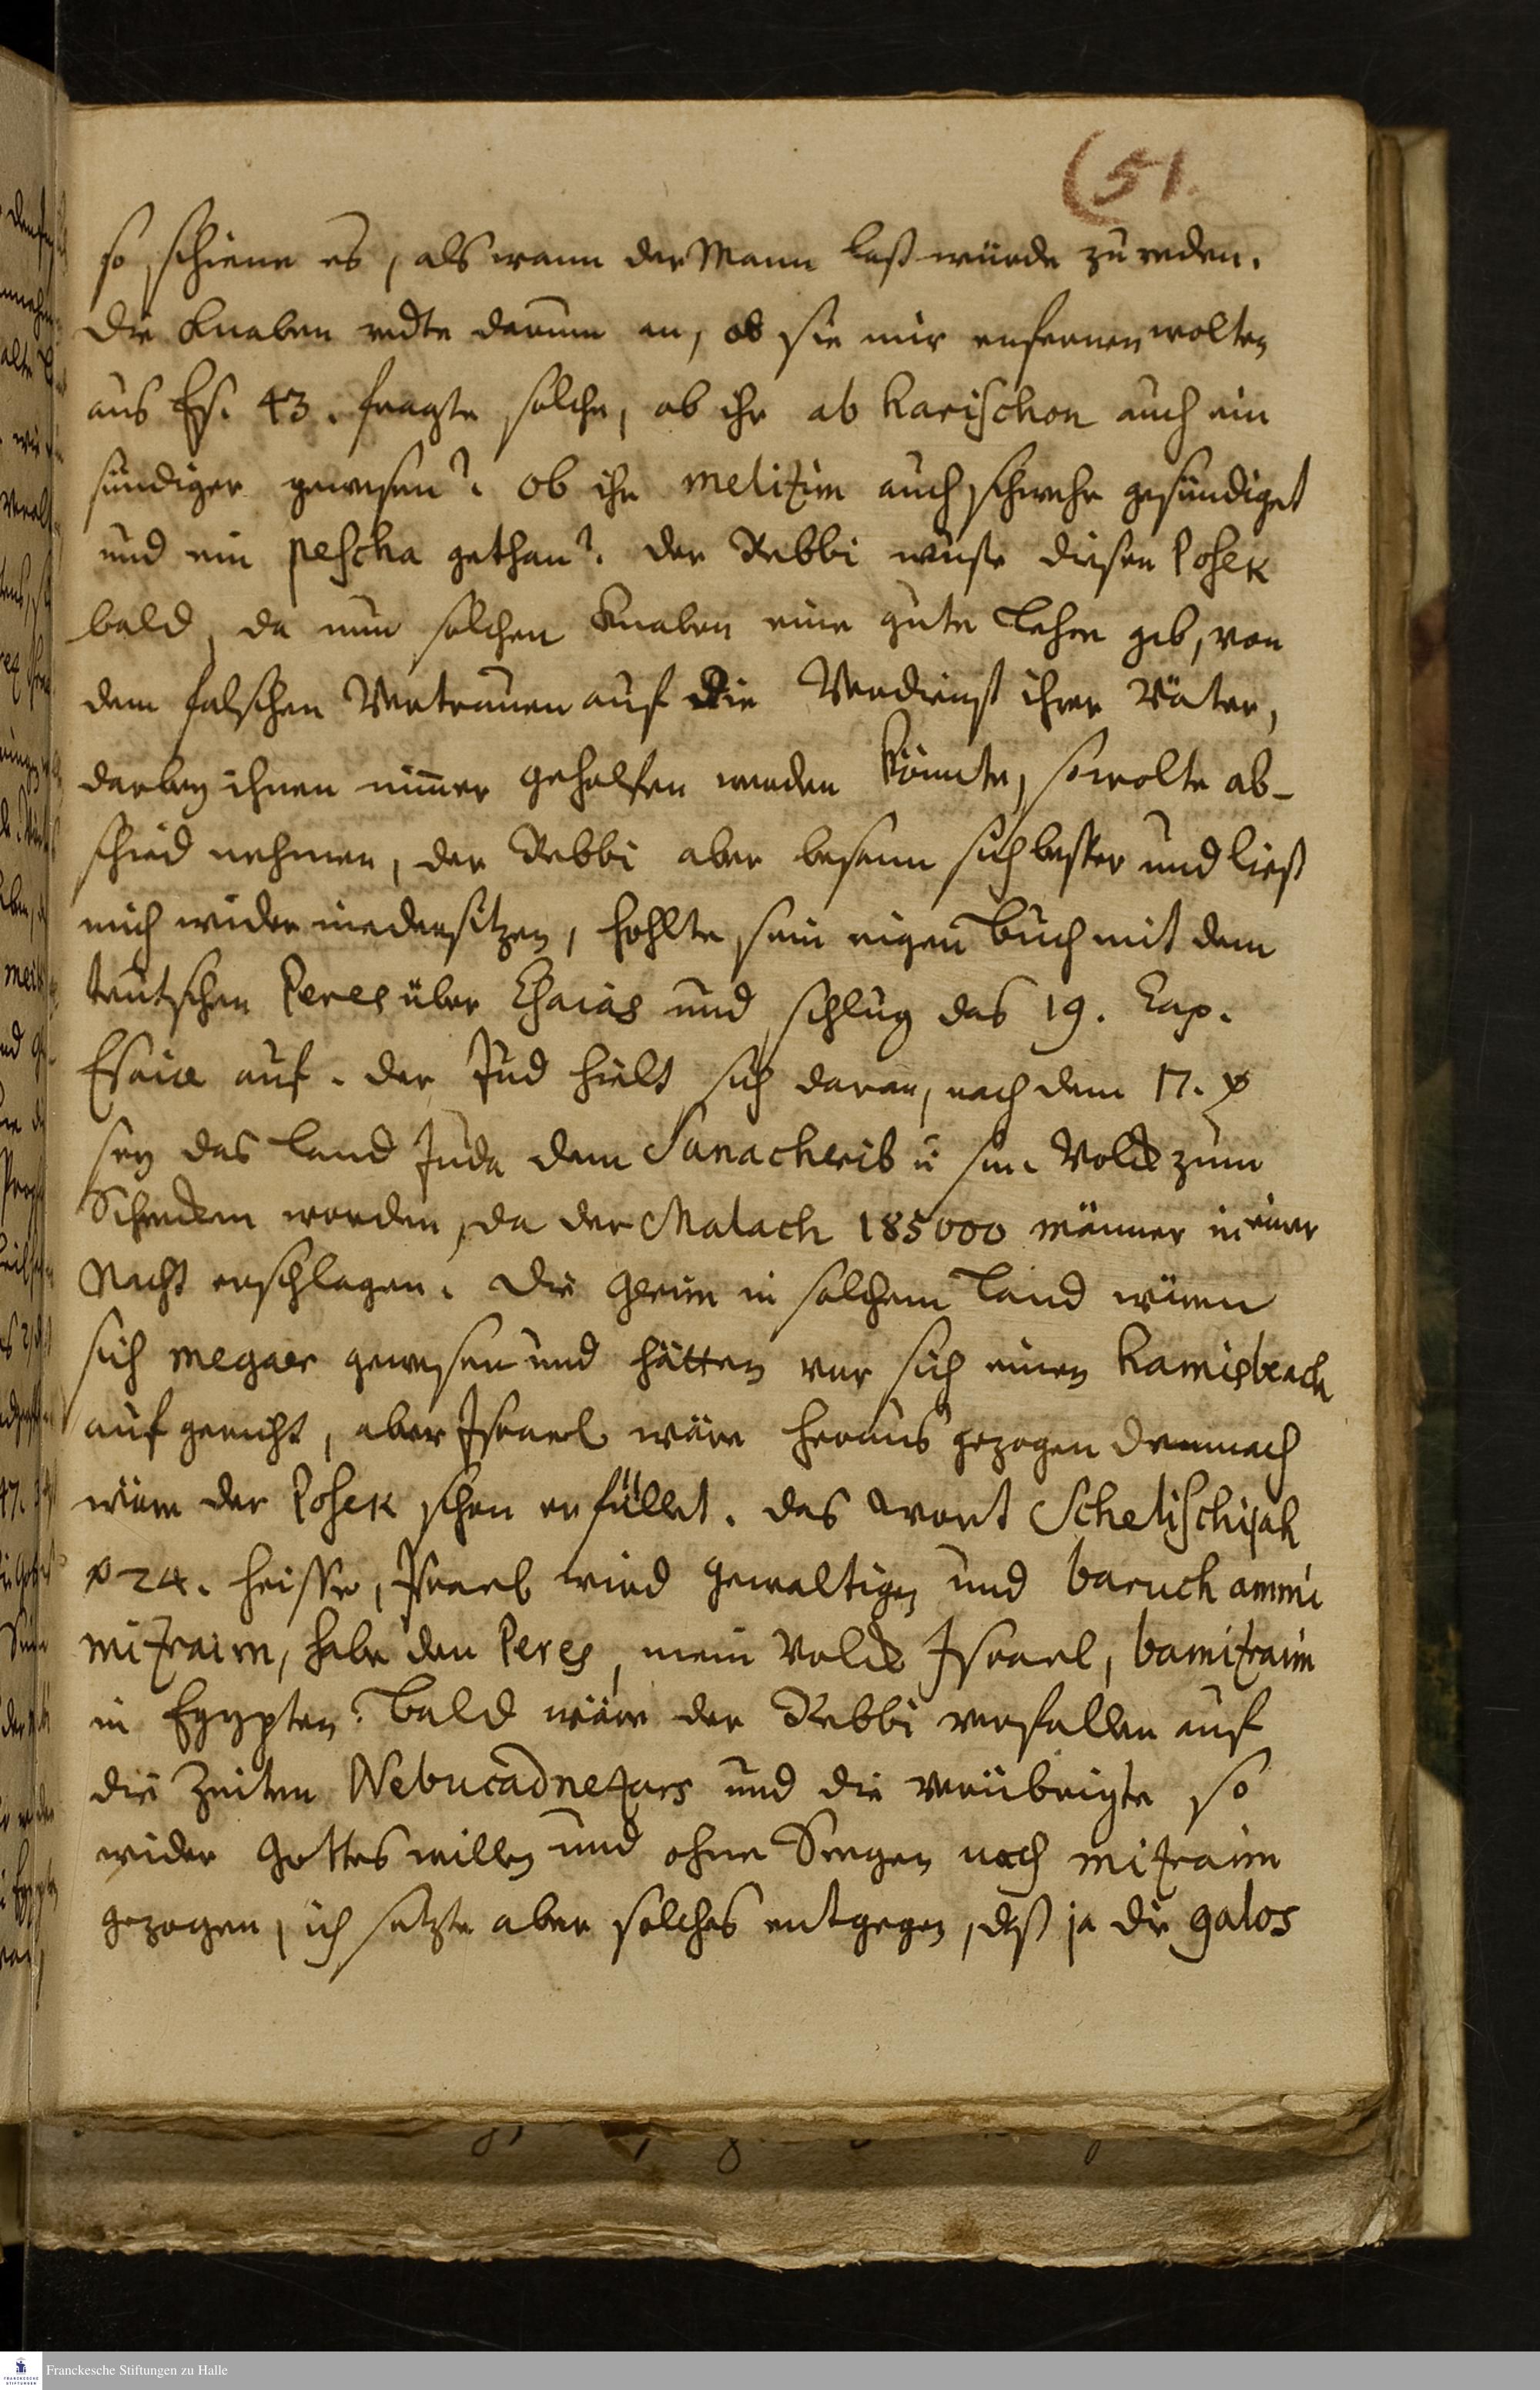 (51.
so schiene es, als wann der Mann laß würde zu reden.
Die Knaben redte darum an, ob sie mir erfernen wolten
aus Es. 43. fragte solche, ob ihr ab harischon auch ein
sündiger gewesen? ob ihr melitzim auch schwehr gesündiget
und ein pescha gethan? der Rebbi wuste diesen Posek
bald, da nun solchen Knaben eine gute Lehre gab, von
dem falschen Vertrauen auf die Verdienst ihrer Väter,
darbey ihnen nim̅er geholfen werden könnte, so wolte ab-
schied nehmen, der Rebbi aber besann sich besser und ließ
mich wider niedersitzen, hohlte sein eigen Buch mit dem
teutschen Peres über Esaias und schlug das 19. Cap.
Esaiæ auf. der Jud hielt sich daran, nach dem 17. ꝟ
sey das Land Juda dem Sanacherib u. sein Volck zum
Schrecken worden, da der Malach 185000 männer in einer
Nacht erschlagen. Die Gerim in solchem Land wären
sich megaer gewesen und hätten vor sich einen hamisbeach
auf gericht, aber Israel wäre heraus gezogen demnach
wäre der Posek schon erfüllet. das wort Schelischijah
ꝟ 24. heisse, Israel wird gewaltigen und baruch ammi
mitzraim, habe den Peres, mein Volck Israel, bamitzraim
in Egypten. Bald wäre der Rebbi verfallen auf
die Zeiten Nebucadnetzars und die verübrigte so
wider Gottes willen und ohne Seegen nach mitzraim
gezogen, ich setzte aber solches entgegen, daß ja die galos
Franckesche Stiftungen zu Halle